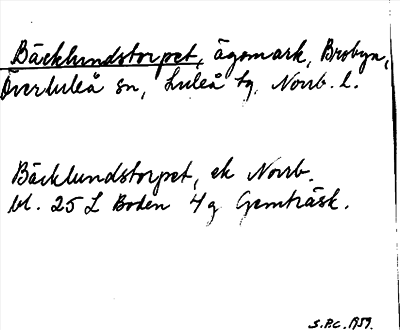 Bäcklundstorpet, ägomark, Brobyn,
Överluleå sn, Luleå tg, Norrb. l.
Bäcklundstorpet, ek Norrb.
bl. 25 L Boden 4 g Gemträsk.
S.P.C. 1959.